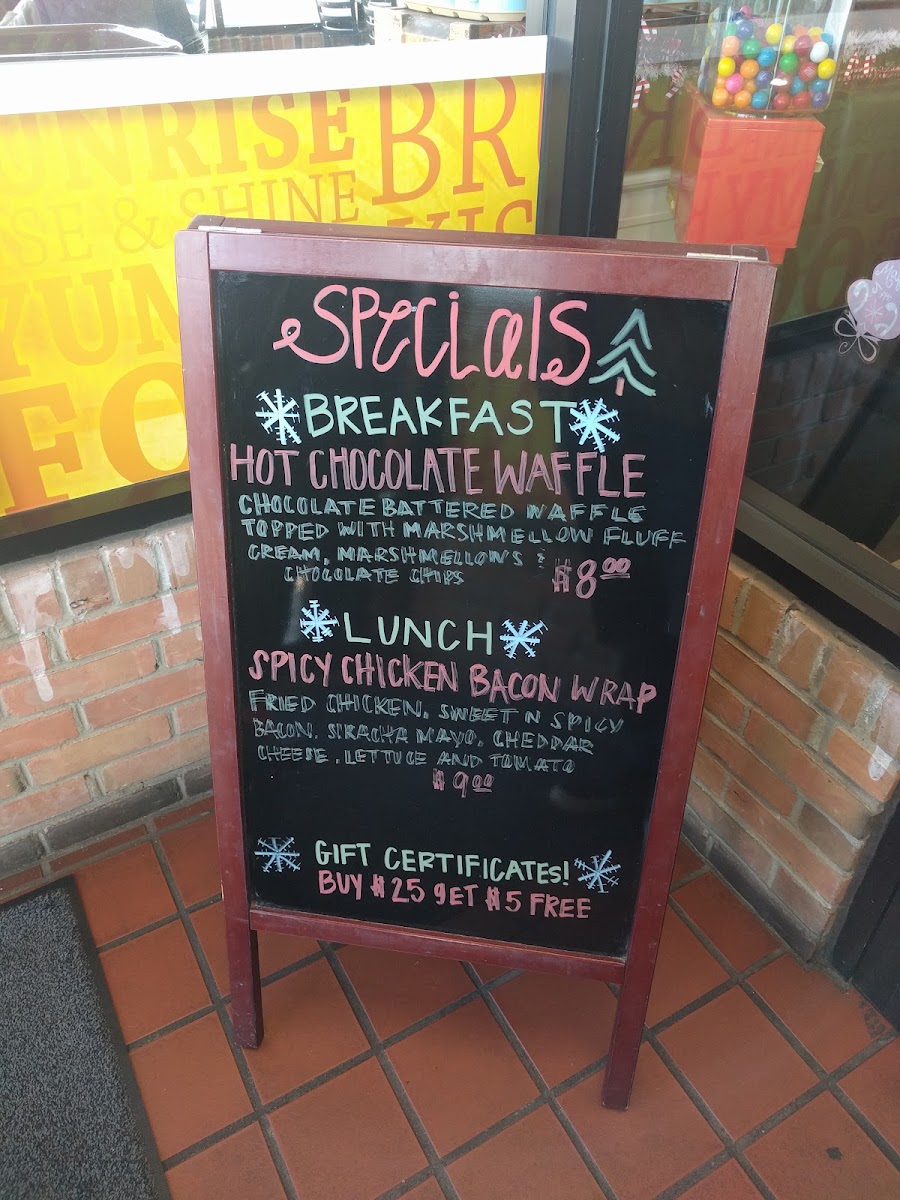 UNRISE
BR
SE & SHINE
YUM
FO
SPECIALS
BREAKFAST
HOT CHOCOLATE WAFFLE
CHOCOLATE BATTERED WAFFLE
TOPPED WITH MARSHMELLOW FLUFF
CREAM, MARSHMELLOW'S &
CHOCOLATE CHIPS $8.00
LUNCH
SPICY CHICKEN BACON WRAP
FRIED CHICKEN, SWEET N SPICY
BACON, SIRACHA MAYO, CHEDDAR
CHEESE, LETTUCE AND TOMATO
$9.00
GIFT CERTIFICATES!
BUY $25 gET $5 FREE